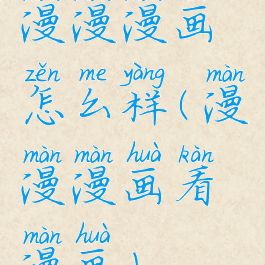 漫漫漫画
zěn me yàng màn
怎么样(漫
màn màn huà kàn
漫漫画看
màn huà
漫画)